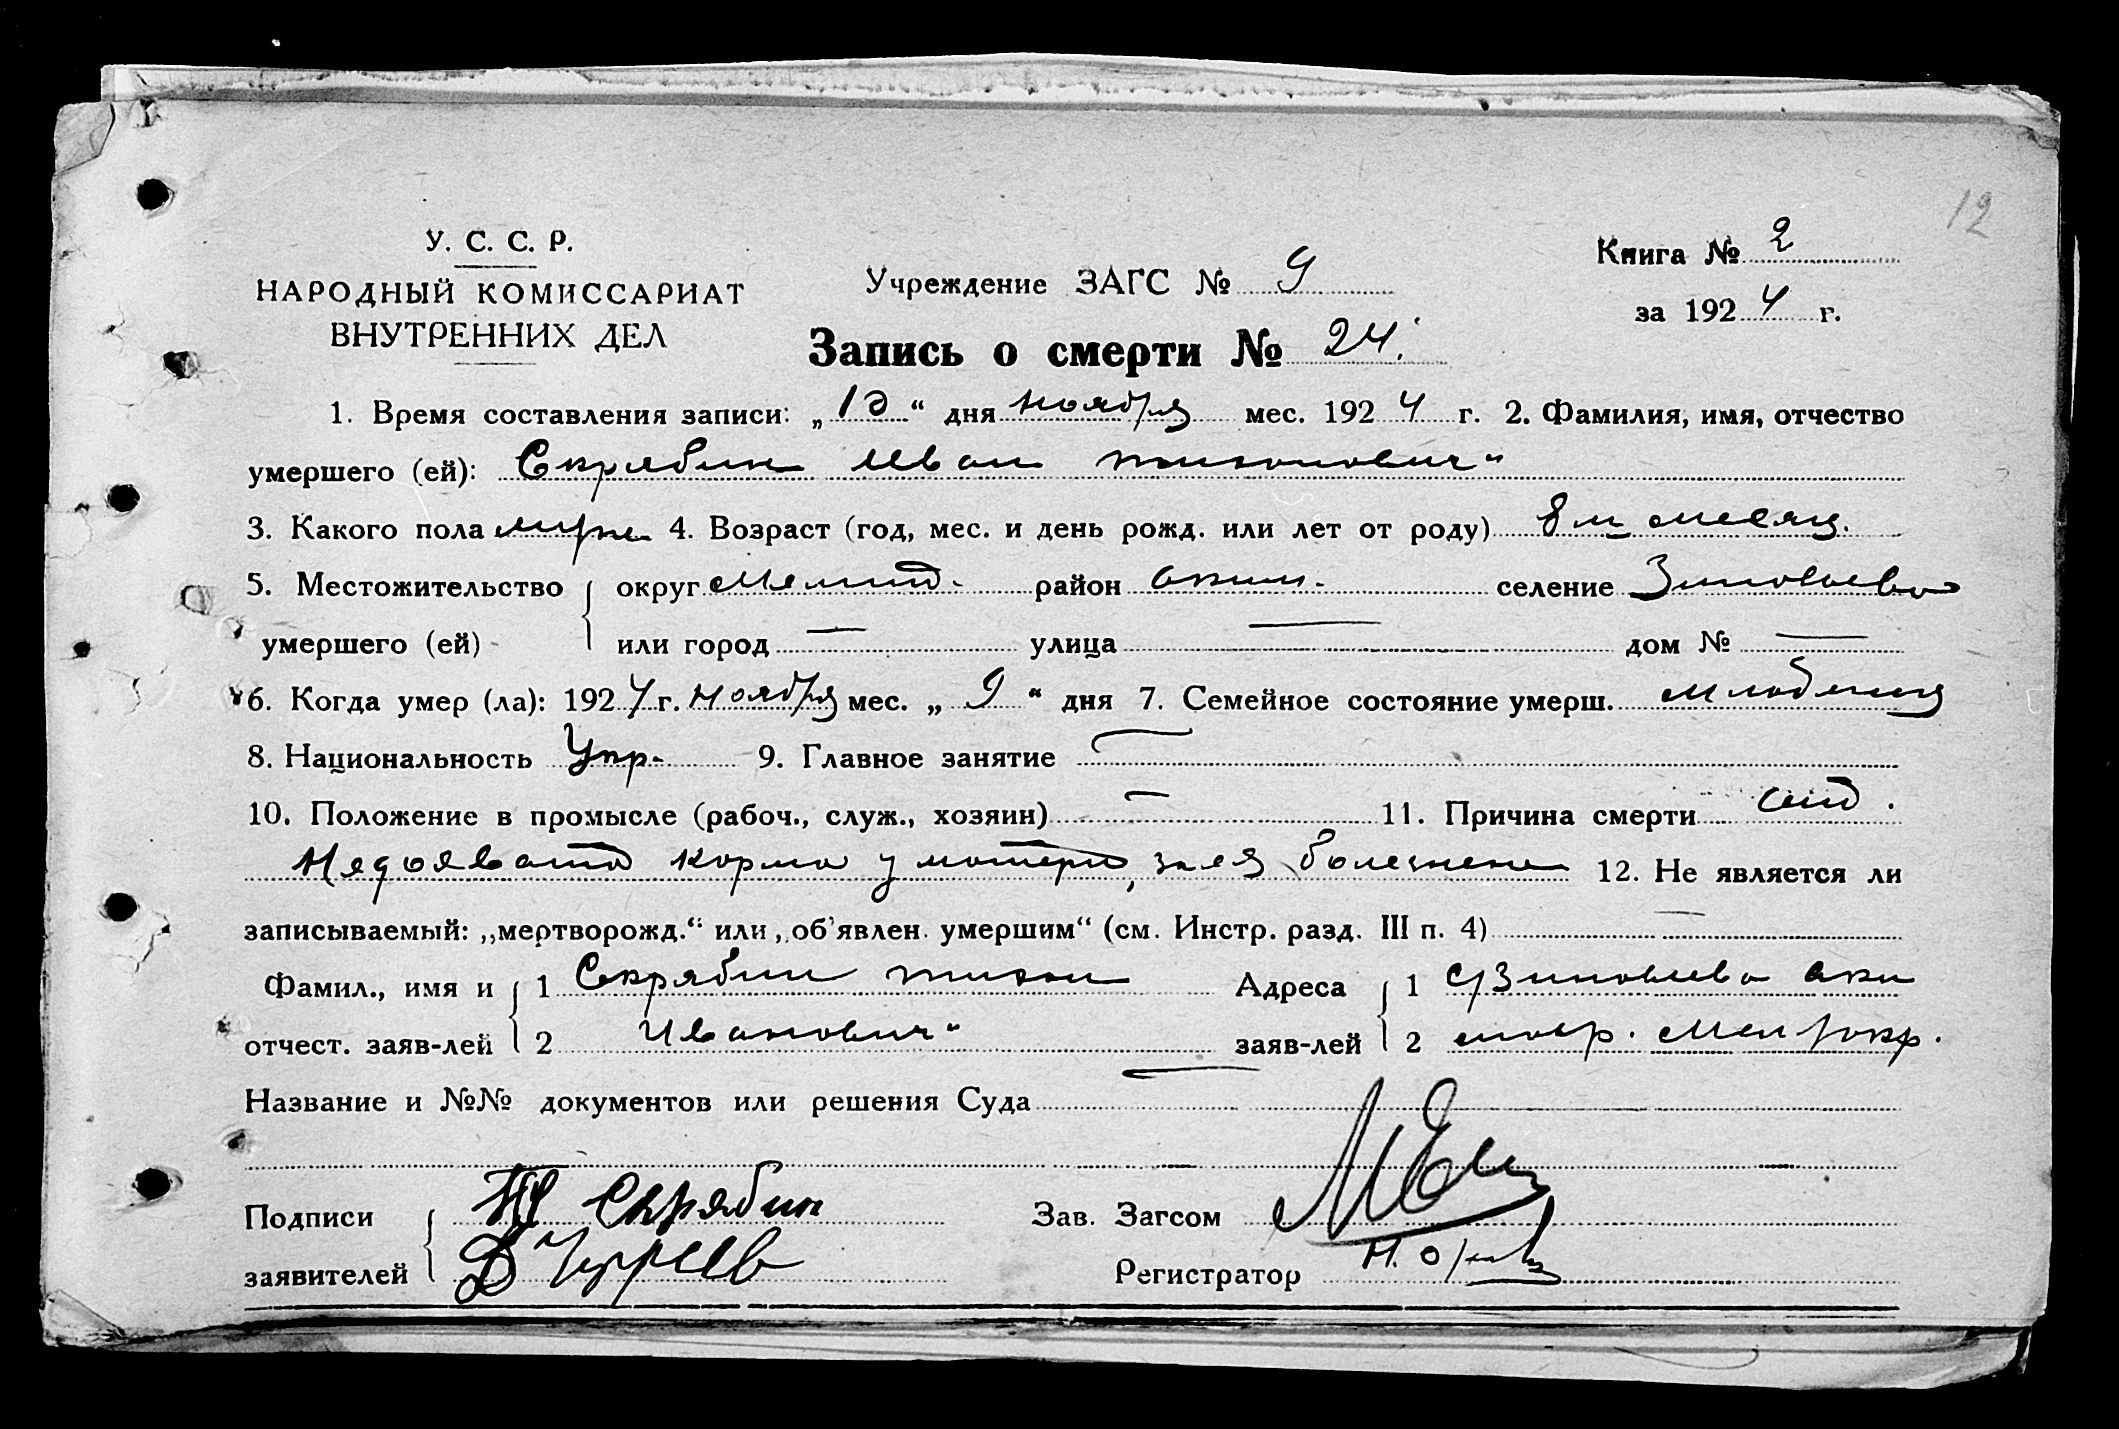 12
У. С. С. Р.
НАРОДНЫЙ КОМИССАРИАТ
ВНУТРЕННИХ ДЕЛ
Учреждение ЗАГС № 9
Книга № 2
за 1924 г.
Запись о смерти № 24.
1. Время составления записи: „10“ дня ноября мес. 1924 г. 2. Фамилия, имя, отчество
умершего (ей): Скрябин Иван Тихонович
3. Какого пола мужс 4. Возраст (год, мес. и день рожд. или лет от роду) 8 м месяц.
5. Местожительство { округ Мелит. район Аким. селение Зиновьево
умершего (ей) или город — улица — дом № —
6. Когда умер (ла): 1924 г. Ноября мес. „ 9 “ дня 7. Семейное состояние умерш. младенец
8. Национальность Укр. 9. Главное занятие —
10. Положение в промысле (рабоч., служ., хозяин) — 11. Причина смерти от
корма у матери, болезнене 12. Не является ли
записываемый: „мертворожд.“ или „об’явлен. умершим“ (см. Инстр. разд. III п. 4) —
Фамил., имя и { 1 Скрябин Тихон Адреса { 1 с/Зиновьево Аки
отчест. заяв-лей 2 Иванович заяв-лей 2 Мел/окр.
Название и №№ документов или решения Суда —
Подписи { Т Скрябин Зав. Загсом
заявителей Регистратор